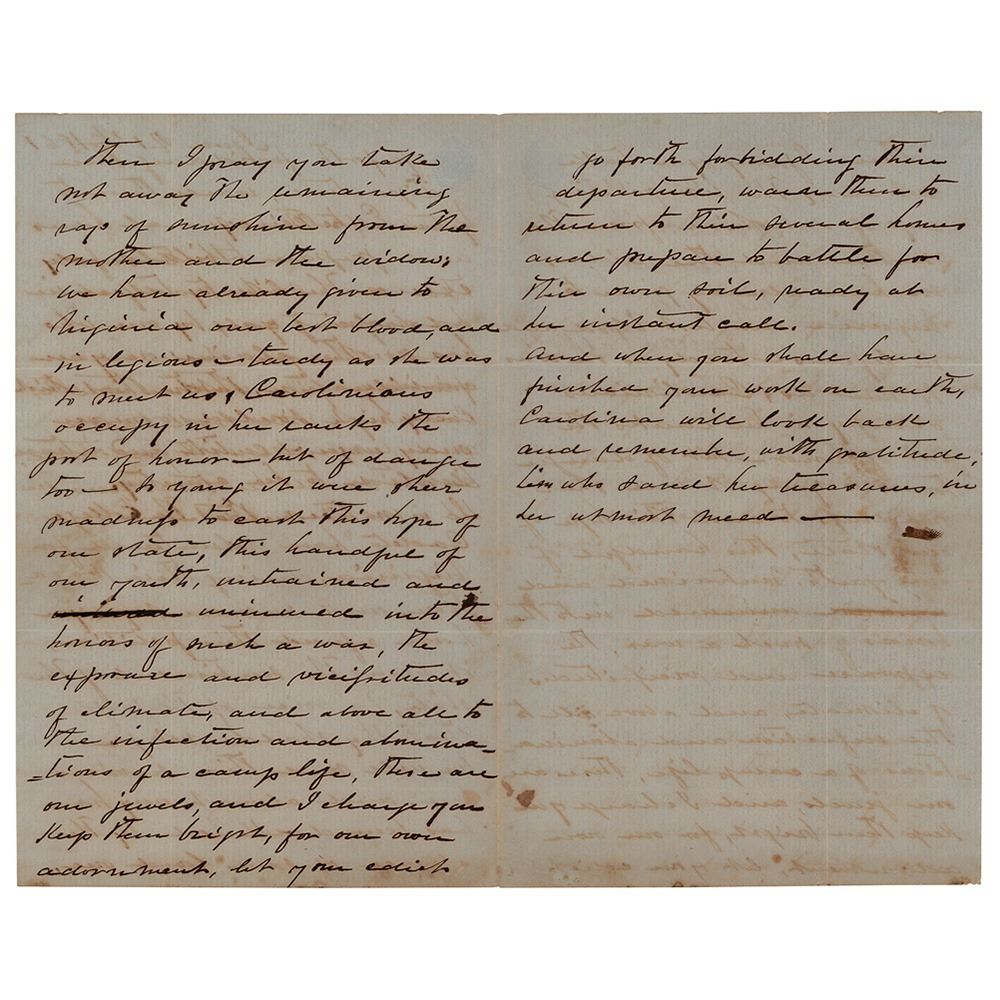 then I pray you take
not away the remaining
rays of sunshine from the
mother and the widow;
we have already given to
Virginia our best blood, and
in legions – tardy as she was
to meet us, Carolinians
occupy in her ranks the
post of honor – but of danger
too – So young it were sheer
madness to cast this hope of
our state, this handful of
our youth, untrained and
uninured into the
horrors of such a war, the
exposure and vicissitudes
of climate, and above all to
the infection and abomina=
=tions of a camp life, these are
our jewels, and I charge you
keep them bright, for our own
adornment, let your edict
go forth forbidding their
departure, warn them to
return to their several homes
and prepare to battle for
their own soil, ready at
her instant call.
And when you shall have
finished your work on earth,
Carolina will look back
and remember, with gratitude,
him who saved her treasures, in
her utmost need —